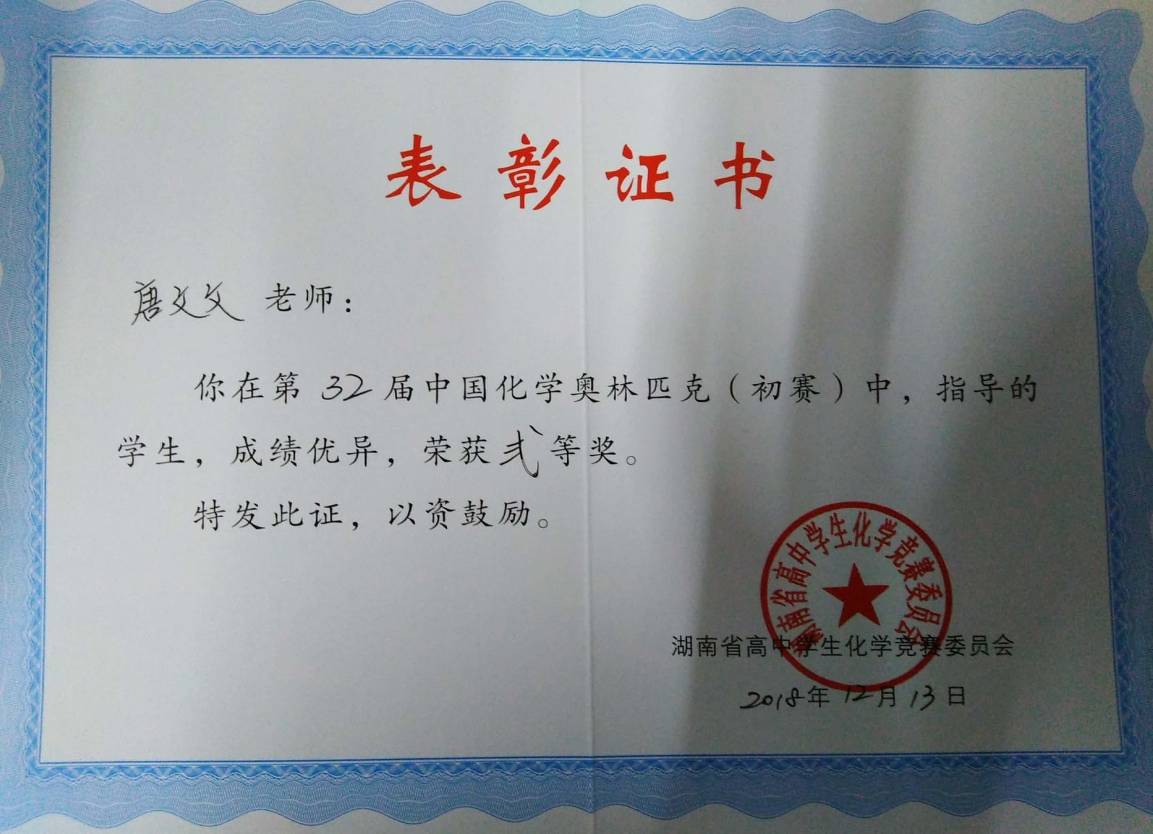 表彰证书
唐文文 老师：
你在第 32 届中国化学奥林匹克（初赛）中，指导的
学生，成绩优异，荣获弍等奖。
特发此证，以资鼓励。
湖南省高中学生化学竞赛委员会
湖南省高中学生化学竞赛委员会
2018年12月13日